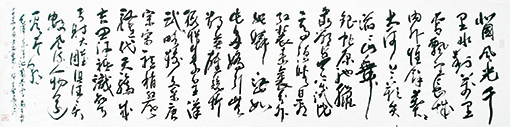 北國風光千
里冰封萬里
雪飄望長城
內外惟餘莽莽
大河上下頓失
滔滔山舞
銀蛇原馳蠟
象欲與天公試比
高須晴日看
紅裝素裹分外
妖嬈江山如
此多嬌引無
數英雄競折
腰惜秦皇漢
武略輸文采唐
宗宋祖稍遜風
騷一代天驕成
吉思汗只識彎
弓射大雕俱往矣
數風流人物還
看今朝